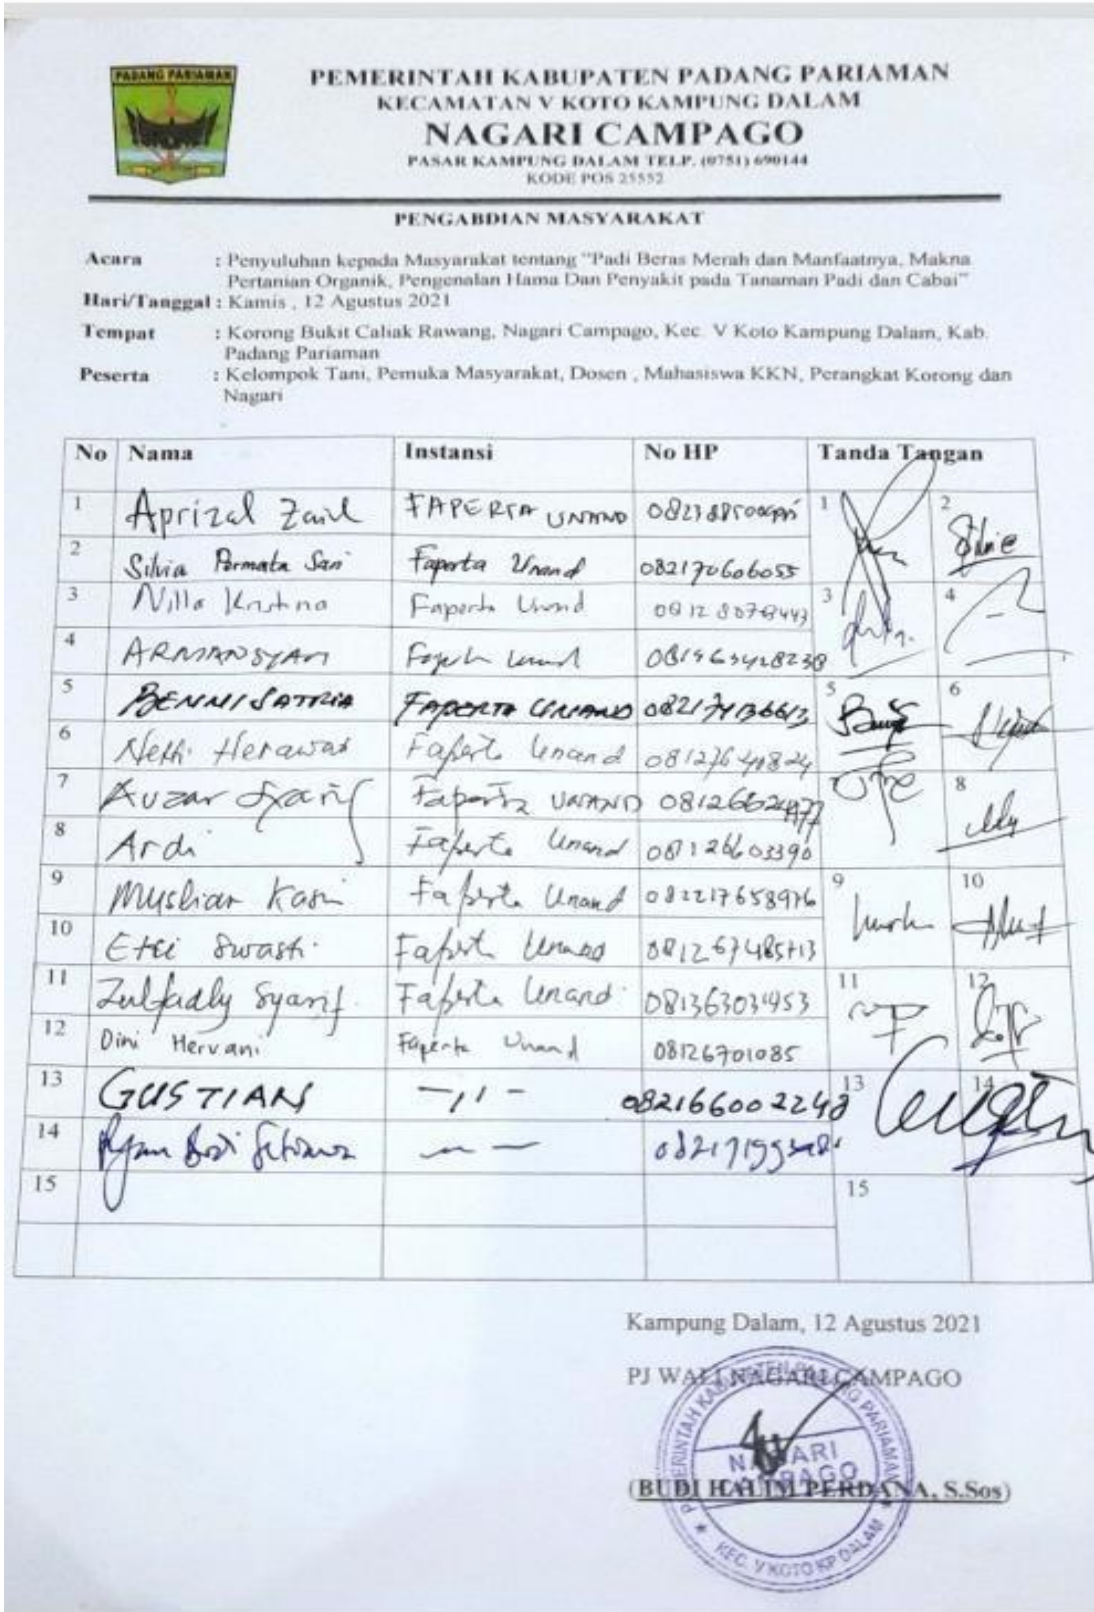 PADANG PARIAMAN
PEMERINTAH KABUPATEN PADANG PARIAMAN
KECAMATAN V KOTO KAMPUNG DALAM
NAGARI CAMPAGO
PASAR KAMPUNG DALAM TELP. (0751) 690144
KODE POS 25552
PENGABDIAN MASYARAKAT
Acara : Penyuluhan kepada Masyarakat tentang "Padi Beras Merah dan Manfaatnya, Makna
Pertanian Organik, Pengenalan Hama Dan Penyakit pada Tanaman Padi dan Cabai"
Hari/Tanggal : Kamis , 12 Agustus 2021
Tempat : Korong Bukit Caliak Rawang, Nagari Campago, Kec. V Koto Kampung Dalam, Kab.
Padang Pariaman
Peserta : Kelompok Tani, Pemuka Masyarakat, Dosen , Mahasiswa KKN, Perangkat Korong dan
Nagari
No Nama Instansi No HP Tanda Tangan
1 Aprizal Zainal FAPERTA UNAND 1 2
2 Silvia Permata Sari Faperta Unand 082170606055
3 Faperta Unand 3 4
4 ARMANSYAH Faperta Unand
5 BENNI SATRIA FAPERTA UNAND 082174136613 5 6
6 Netti Herawati Faperta Unand 081276740824
7 Auzar Syarif Faperta UNAND 7 8
8 Ardi Faperta Unand 081126603390
9 Musliar Kasim Faperta Unand 082217658976 9 10
10 Etti Swasti Faperta Unand
11 Zulfadly Syarif Faperta Unand 081363031453 11 12
12 Dini Hervani Faperta Unand 08126701085
13 GUSTIAN -11- 082166002248 13 14
14
15 15
Kampung Dalam, 12 Agustus 2021
PJ WALI NAGARI CAMPAGO
PEMERINTAH KABUPATEN PADANG PARIAMAN
NAGARI
CAMPAGO
KEC. V KOTO KP DALAM
(BUDI HALIM PERDANA, S.Sos)